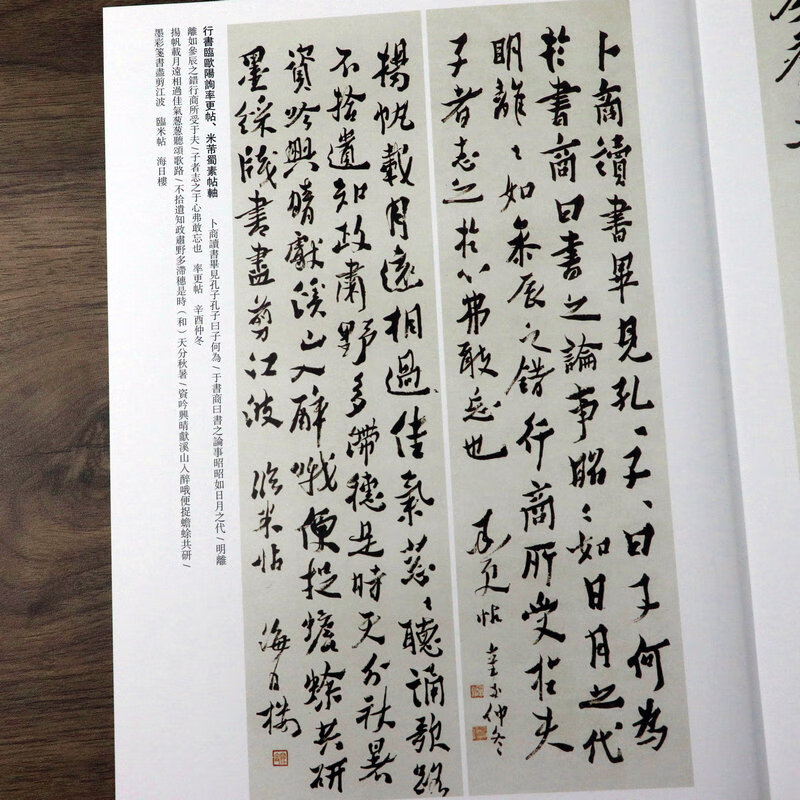 卜商讀書畢見孔〻子〻曰子何為
於書商曰書之論事昭〻如日月之代
明離〻如參辰之錯行商所受於夫
子者志之於心弗敢忘也 率更帖 辛酉仲冬
揚帆載月遠相過佳氣葱〻聽誦歌路
不拾遺知政肅野多滯穗是時天分秋暑
資吟興晴獻溪山入醉哦便捉蟾蜍共研
墨綵牋書盡剪江波 臨米帖 海日樓
行書臨歐陽詢率更帖、米芾蜀素帖軸 卜商讀書畢見孔子孔子曰子何為/于書商曰書之論事昭昭如日月之代/明離
離如參辰之錯行商所受于夫/子者志之于心弗敢忘也 率更帖 辛酉仲冬
揚帆載月遠相過佳氣葱葱聽頌歌路/不拾遺知政肅野多滯穗是時（和）天分秋暑/資吟興晴獻溪山入醉哦便捉蟾蜍共研/
墨彩箋書盡剪江波 臨米帖 海日樓